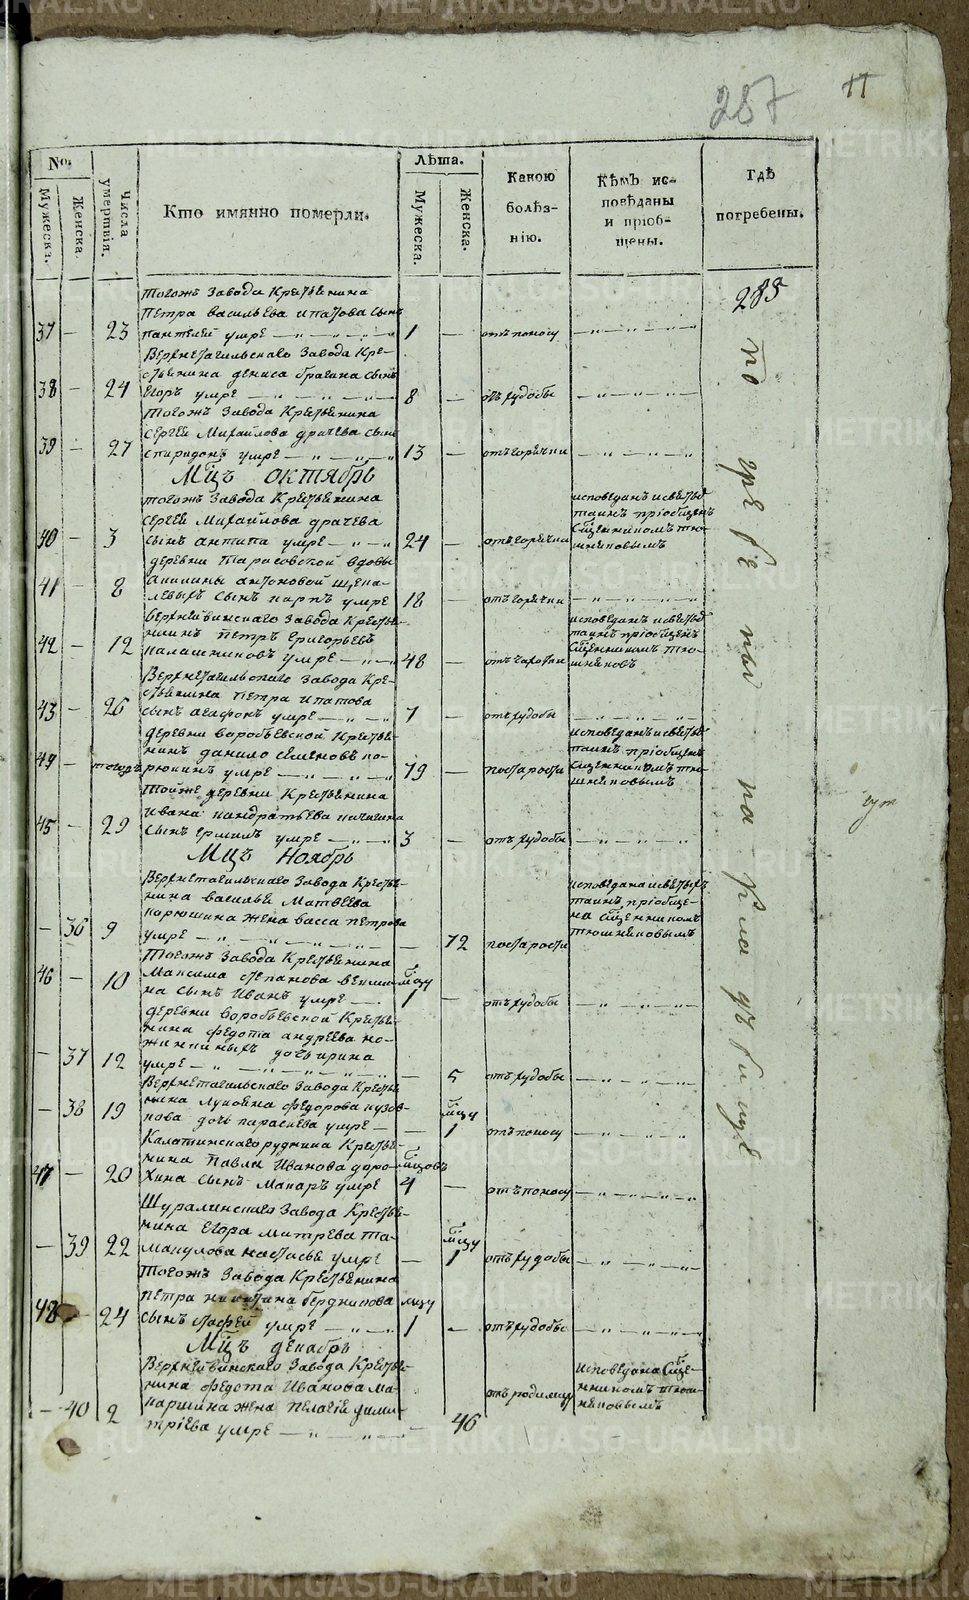 METRIKI.GASO-URAL.RU
287
11
№.
Мужеска.
Женска.
Числа умертвія.
Кто имянно померли.
Лѣта.
Мужеска.
Женска.
Какою болѣз-
нію.
Кѣмъ ис-
повѣданы
и пріоб-
щены.
Гдѣ
погребены.
285
тогожъ завода крестьянина
петра васильева ипатова сынъ
37 — 23 пантелей умре — 1 — отъ поносу
верхнетагильскаго завода кре-
стьянина дениса брагина сынъ
38 — 24 егоръ умре — 8 — отъ худобы
тогожъ завода крестьянина
сергея михайлова драчева сынъ
39 — 27 спиридонъ умре — 13 — отъ горячки
Мцъ октябрь
тогожъ завода крестьянина
сергея михайлова драчева
40 — 3 сынъ антипа умре — 24 — отъ горячки
исповеданъ и святыхъ
таинъ пріобщенъ
Сщенникомъ тю-
шняковымъ
деревни тарасовской вдовы
акилины антоновой щепа-
41 — 8 левыхъ сынъ карпъ умре 18 — отъ горячки
верхнейвинскаго завода кресть-
янинъ петръ григорьевъ
42 — 12 калашниковъ умре — 48 — отъ чахотки
исповеданъ и святыхъ
таинъ пріобщенъ
Сщенникомъ тю-
шняковъ
верхнетагильскаго завода кре-
стьянина петра ипатова
43 — 26 сынъ агафонъ умре — 7 — отъ худобы
деревни воробьевской крестья-
нинъ данило семеновъ ко-
44 — тогожъ рюкинъ умре — 79 — по старости
исповеданъ и святыхъ
таинъ пріобщенъ
Сщенникомъ тю-
шняковымъ
тойже деревни крестьянина
ивана кондратьева кичигина
45 — 29 сынъ ермилъ умре — 3 — отъ худобы
Мцъ Ноябрь
верхнетагильскаго завода крестья-
нина василья матвеева
корюкина жена васса петрова
— 36 9 умре — 72 по старости
исповедана и святыхъ
таинъ пріобще-
на Сщенникомъ
тюшняковымъ
тогожъ завода крестьянина
максима степанова
46 — 10 сынъ иванъ умре — мцу 1 — отъ худобы
деревни воробьевской крестья-
нина федота андреева
дочь ирина
— 37 12 умре — 5 отъ худобы
верхнетагильскаго завода крестья-
нина лукояна федорова кузов-
— 38 19 кова дочь параскева умре — мцу 1 отъ поносу
калатинскаго рудника крестья-
нина павла иванова доро-
47 — 20 хина сынъ макаръ умре мцовъ 4 — отъ поносу
шуралинскаго завода крестья-
нина егора митрева та-
— 39 22 макулова настасья умре — мцу 1 отъ худобы
тогожъ завода крестьянина
петра никитина бердникова
48 — 24 сынъ умре — мцу 1 — отъ худобы
Мцъ декабрь
верхнейвинскаго завода крестья-
нина федота иванова ма-
— 40 2 каркина жена пелагия дими-
тріева умре — 46 отъ родимцу
исповедана Сще-
нникомъ тюш-
няковымъ
погребены на кладбище